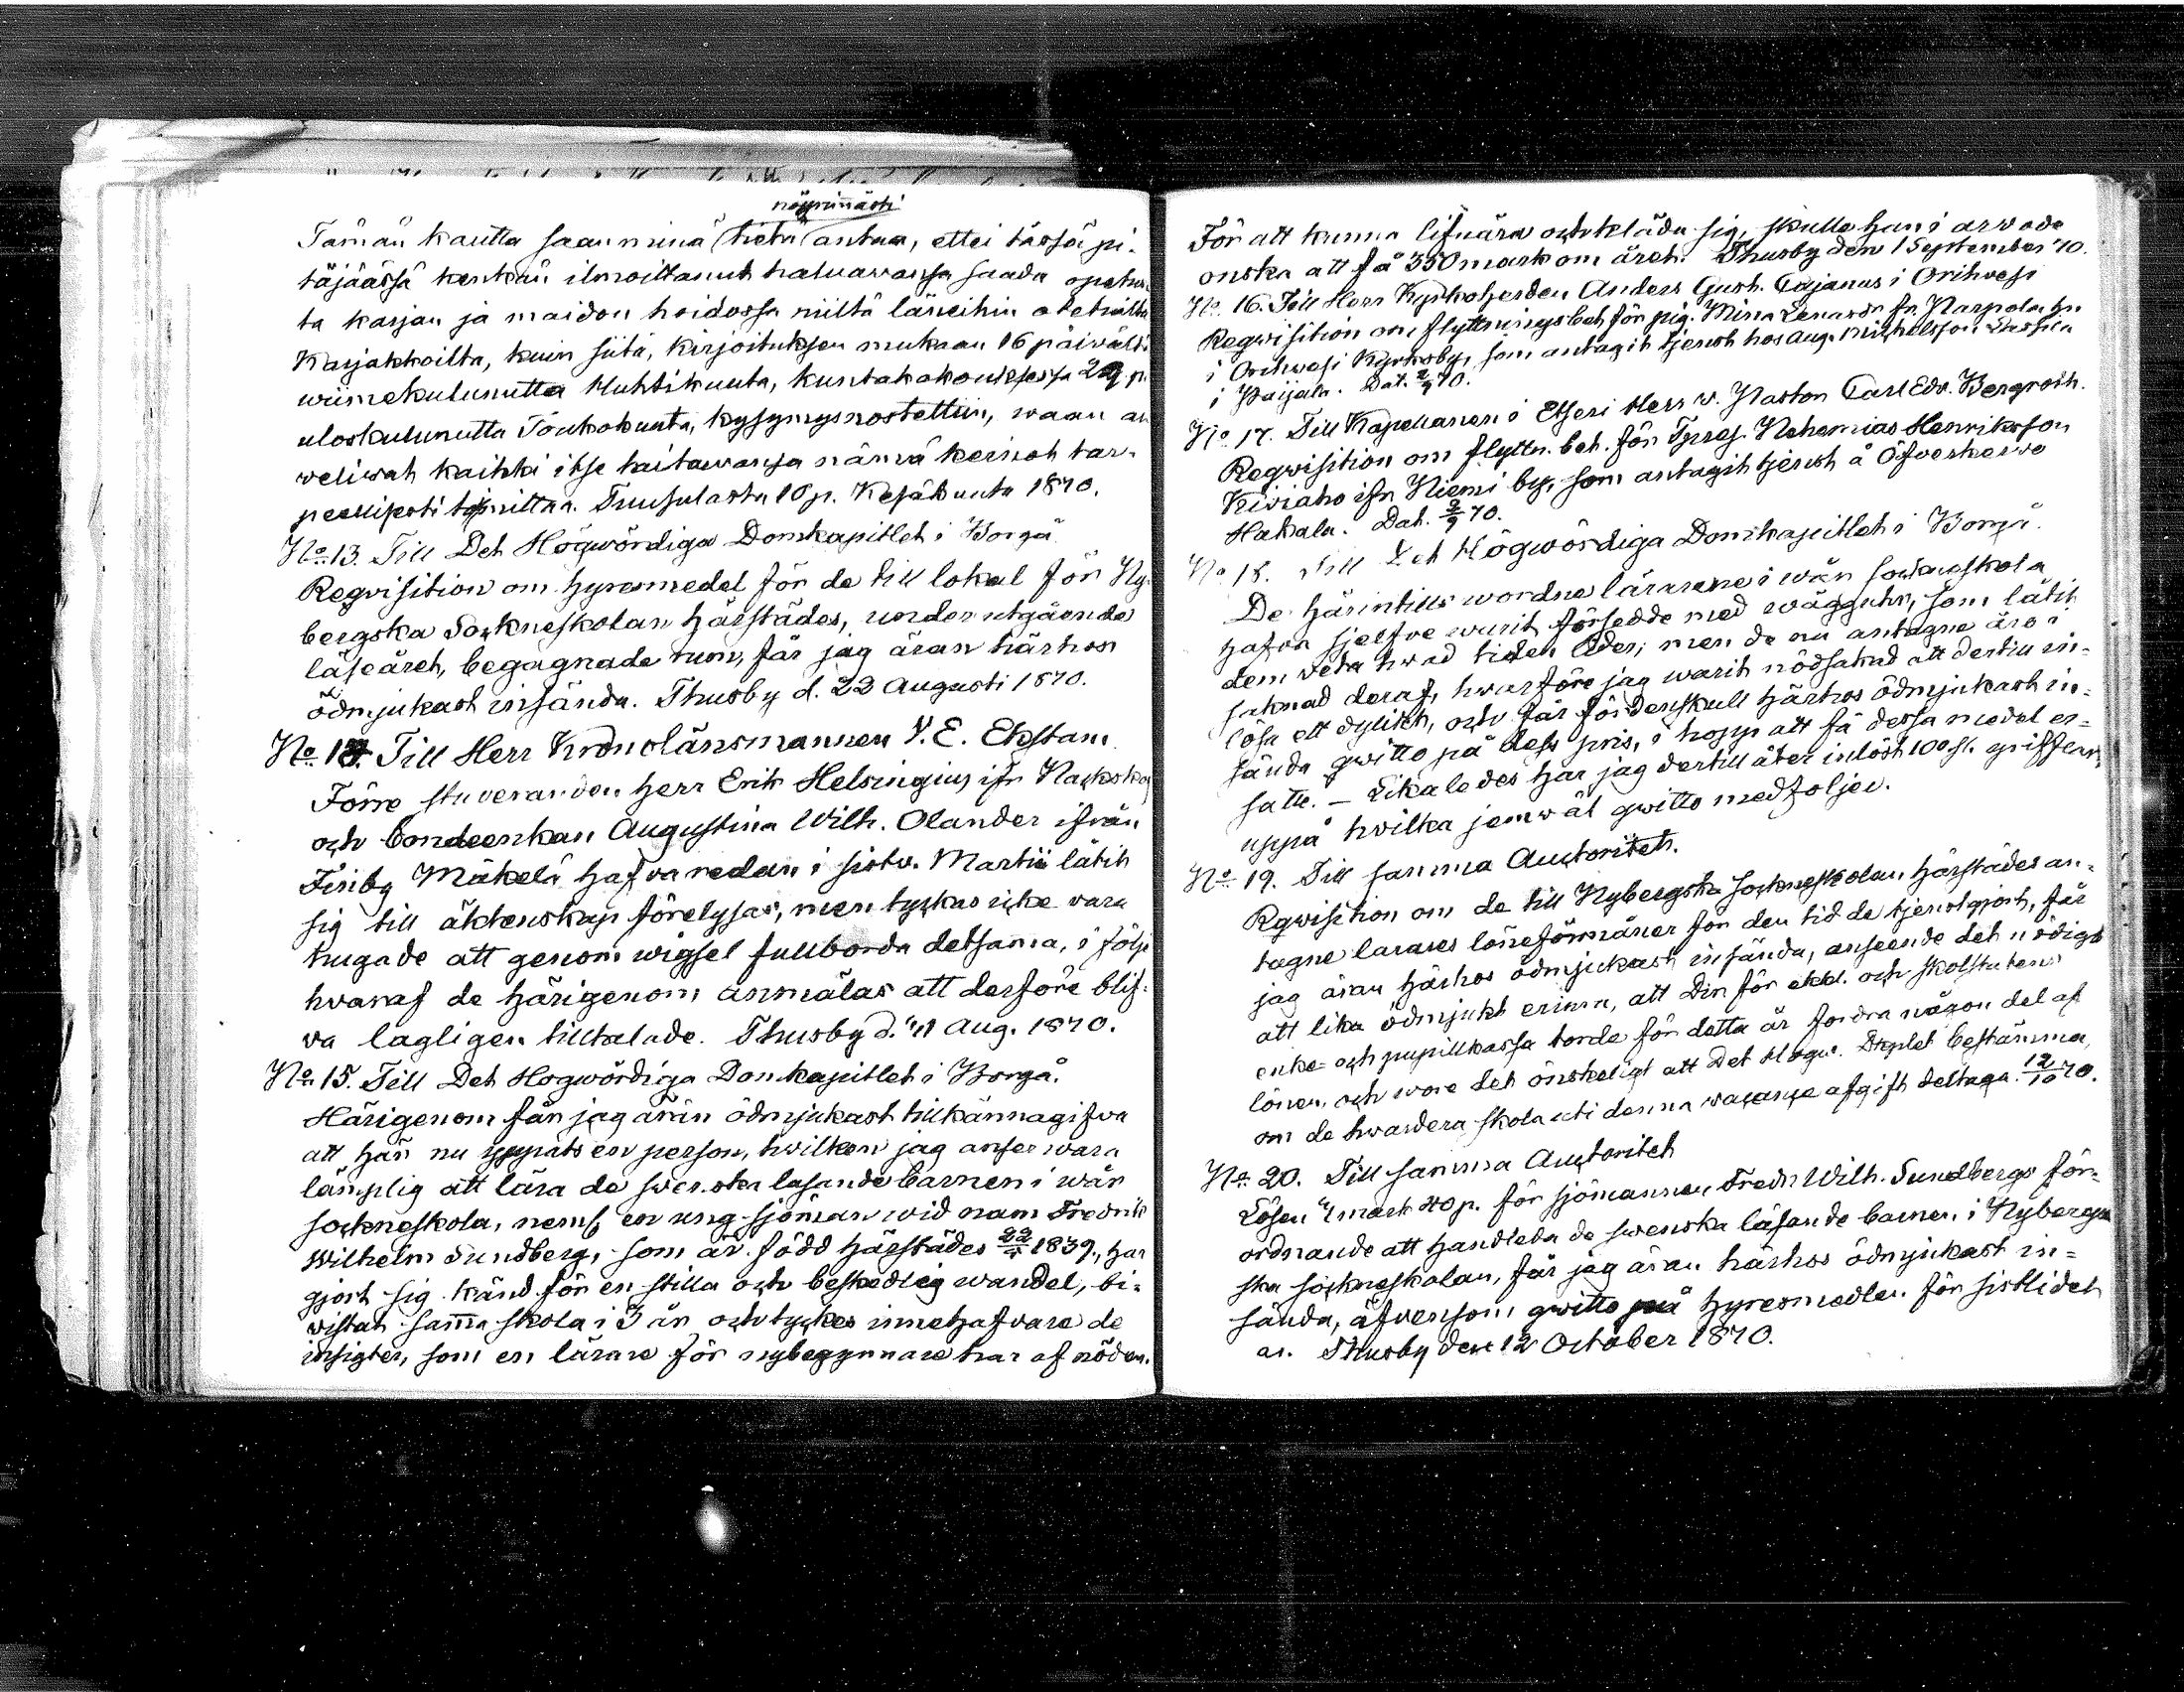 nöyrimmästi
Tämän kautta saan minä tietä antaa, ettei tässä pi-
täjäässä kenkän ilmoittanut haluavansa saada opetus-
ta karjan ja maidon hoidossa niiltä lääneihin otetuilta
Karjakkoilta, kuin siitä, kirjoituksen mukaan 16 päivältä
wiimekulunutta Huhtikuuta, kuntakokouksessa 29 p.
uloskulunutta Toukokuuta, kysymys nostettiin, waan ar
weliwat kaikki itse taitawansa nämä keinot tar-
peellisesti toimittaa. Tuusulasta 10 p. Kesäkuuta 1870.
No 13. Till Det Högwördiga Domkapitlet i Borgå
Reqvisition om hyresmedel för de till lokal för Ny-
bergska Sockneskolan härstädes, under utgående
läseåret, begagnade rum, får jag äran härhos
ödmjukast insända. Thusby d. 22 Augusti 1870.
No 14. Till Herr Kronolänsmannen V. E. Ekstam
Förre stuveranden herr Erik Helsingius ifr Nackskog
och bondeenkan Augustina Wilh. Olander ifrån
Finby Mäkelä hafva redan i sistv. Martii låtit
sig till äktenskap förelysas, men tyckas icke vara
hugade att genom wigsel fullborda detsama, i följe
hvaraf de härigenom anmälas att derföre blif-
va lagligen tilltalade. Thusby d. 11 Aug. 1870.
No 15. Till Det Högwördiga Domkapitlet i Borgå.
Härigenom får jag äran ödmjukast tillkännagifva
att här nu yppats en person, hwilken jag anser wara
lämplig att lära de swenska läsande barnen i wår
sockneskola, neml. en ung sjöman wid namn Fredrik
Wilhelm Sundberg, som är född härstädes 1839, har
gjort sig känd för en stilla och beskedlig wandel, bi-
vistat samma skola i 3 år och tyckes innehafvare de
insigter, som en lärare för nybegynnare har af nöden.
För att kunna lifnära och kläda sig, skulle han i arvode
önska att få 350 mark om året. Thusby den 1 September 70.
No 16. Till Herr Kyrkoherden Anders Gust. Cajanus i Orihvesi
Reqvisition om flyttningsbet för pig. Mina Lenardr fr.
i Orihvesi Kyrkoby, som antagit tjenst hos Aug. Michelsson
i Paijala. Dat. 2/9 70.
No 17. Till Kapellanen i Etseri Herr v. Pastor Carl Edv. Bergroth.
Reqvisition om flyttn. bet. för Nehemias Henriksson
Kiviaho ifr Niemi by, som antagit tjenst å Öfverkervo
Hakala. Dat. 2/9 70.
No 18. Till Det Högwördiga Domkapitlet i Borgå.
De härintills wordne lärarene i wår sockneskola
hafva sjelfve warit försedde med wägguhr, som låtit
dem veta hwad tiden lider; men de nu antagne äro i
saknad deraf, hwarföre jag warit nödsakad att dertill in-
lösa ett dylikt, och får fördenskull härhos ödmjukast in-
sända qwitto på dess pris, i hopp att få dessa medel er-
satte. – Likaledes har jag dertill åter inlöst 100 st. grifflar,
uppå hvilka jemwäl qwitto medföljer.
No 19. Till samma Auctoritet.
Rqwisition om de till Nybergska sockneskolan härstädes an-
tagne lärares löneförmåner för den tid de tjenstgjort, får
jag äran härhos ödmjukast insända, anseende det nödigt
att lika ödmjukt erinra, att Dir för och skolstatens
enke- och pupillkassa torde för detta år fordra någon del af
lönen, och wore det önskeligt att Det Högw. Dcaplet bestämma,
om de hwardera skola uti denna wacance afgift deltaga. 12/10 70.
No 20. Till samma Auctoritet
Lösen 4 mark 40 p. för sjömannen Fredr Wilh. Sundbergs för-
ordnande att handleda de swenska läsande barnen i Nybergs-
ska sockneskolan, får jag äran härhos ödmjukast in-
sända, äfvensom qwitto på hyresmedlen för sistlidet
år. Thusby den 12 October 1870.